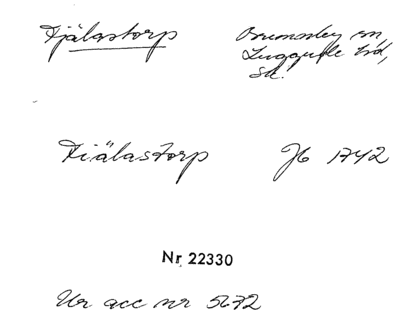 Fjälastorp Brunnby sn,
Luggude hd,
Sk.
Fiälastorp Jb 1742
Nr 22330
Ur acc nr 5672